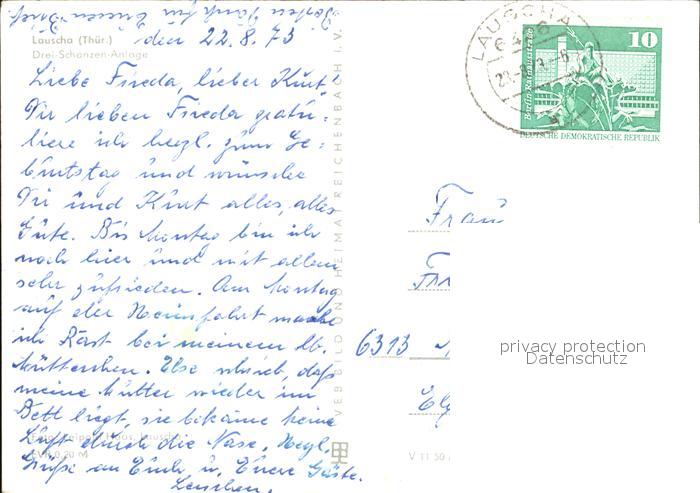 Besten Dank für Deinen Brief
Lauscha (Thür.) den 22.8.73
Drei-Schanzen-Anlage
Liebe Frieda, lieber Kurt!
Dir lieben Frieda gratu-
liere ich herzl. zum Ge-
burtstag und wünsche
Dir und Kurt alles, alles
Gute. Bis Montag bin ich
noch hier und mit allem
sehr zufrieden. Am Montag
auf der Heimfahrt mache
ich Rast bei meinem lb.
Mütterchen. Else schrieb, daß
meine Mutter wieder im
Bett liegt, sie bekäme keine
Luft durch die Nase. Herzl.
Grüße an Euch u. Eure Gäste.
Lenchen.
EVP 0,20 M
VEB BILD UND HEIMAT REICHENBACH I. V.
V 11 50
LAUSCHA
6426
10
Berlin Rathausstraße
DEUTSCHE DEMOKRATISCHE REPUBLIK
Frau
6313
privacy protection
Datenschutz